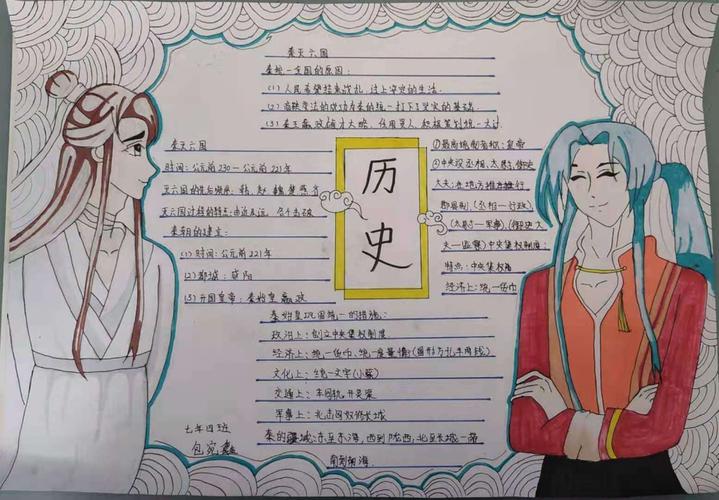 秦灭六国
秦统一六国的原因:
(1)人民希望结束战乱,过上安定的生活.
(2)商鞅变法的成功为秦的统一打下了坚实的基础.
(3)秦王嬴政雄才大略,任用贤人,积极策划统一大计
秦灭六国
时间:公元前230—公元前221年
灭六国的先后顺序:韩,赵,魏,楚,燕,齐
灭六国过程的特点:由近及远,各个击破
秦朝的建立:
(1)时间:公元前221年
(2)都城:咸阳
(3)开国皇帝:秦始皇嬴政
历史
①最高统治者称:皇帝
②中央设丞相,太尉,御史
大夫;在地方推行
郡县制,(丞相—行政)
(太尉—军事),(御史大
夫—监察)中央集权制度:
特点:中央集权
经济上:统一货币
秦始皇巩固统一的措施:
政治上:创立中央集权制度
经济上:统一货币,统一度量衡(圆形方孔半两钱)
文化上:统一文字(小篆)
交通上:车同轨,开灵渠
军事上:北击匈奴修长城
秦的疆域:东至东海,西到陇西,北至长城一带
南到南海.
七年四班
包宛